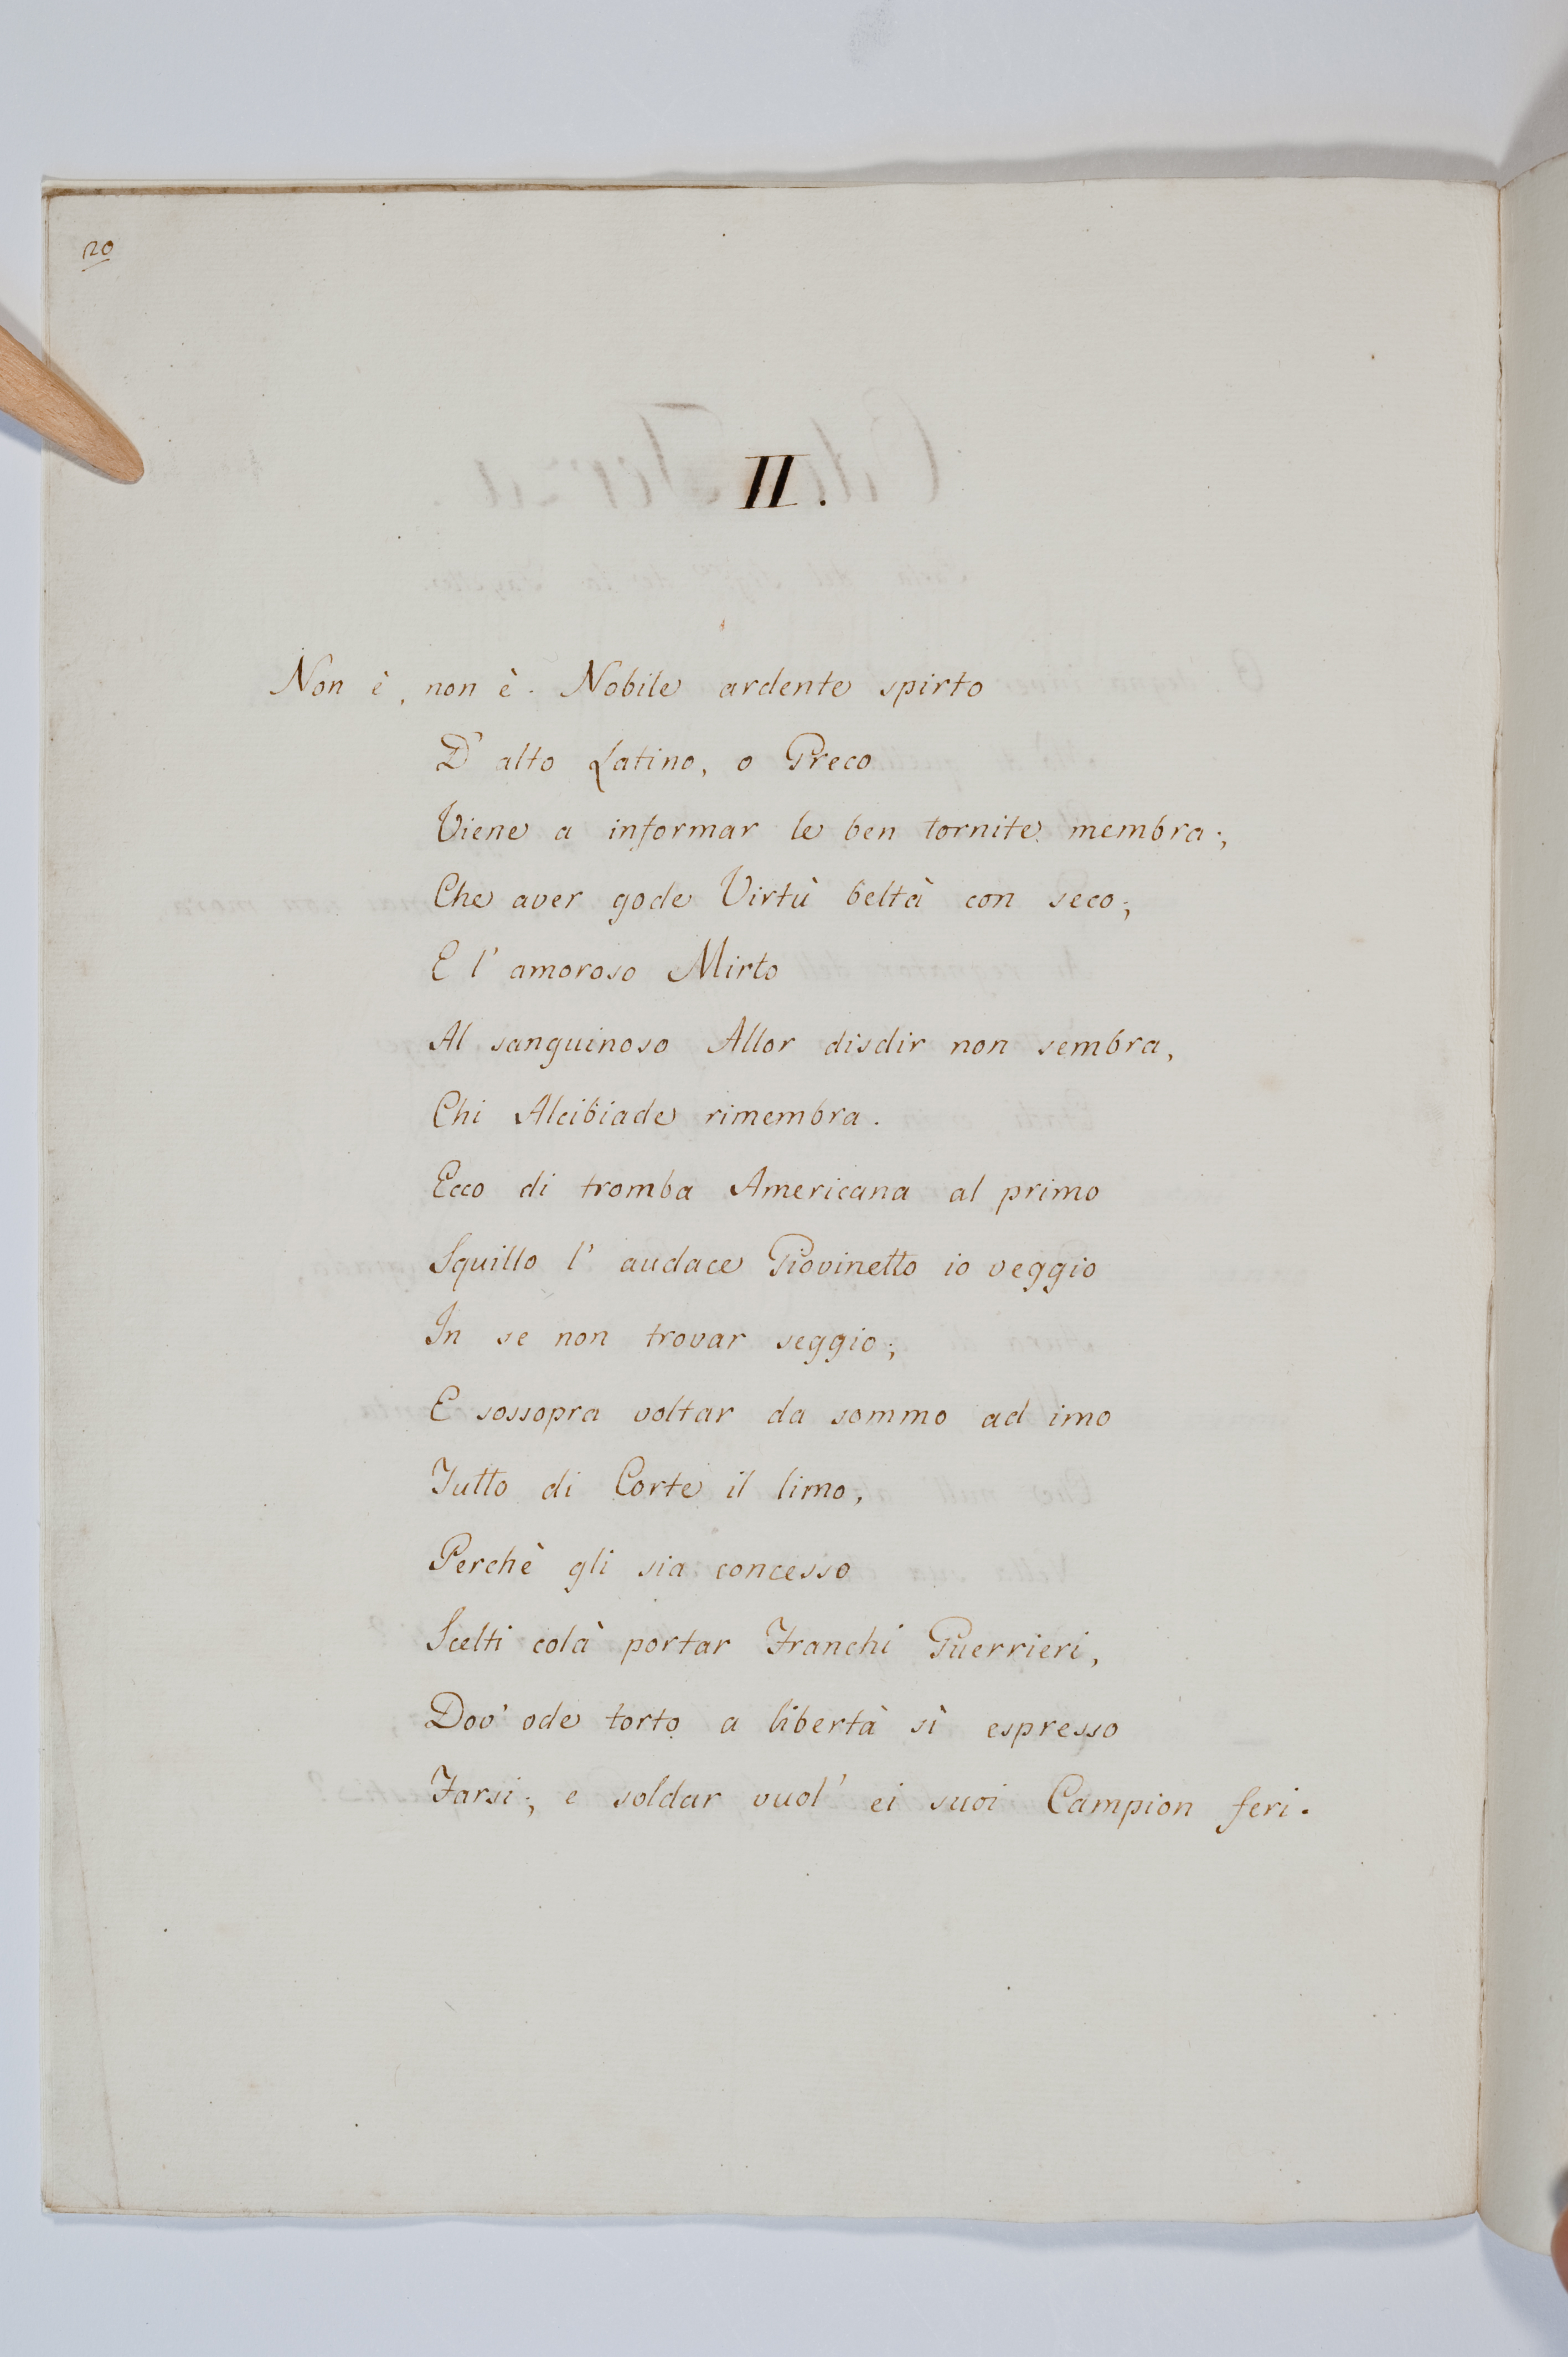 20
II.
Non è, non è. Nobile ardente spirto
D' alto Latino, o Greco
Viene a informar le ben tornite membra;
Che aver gode Virtù beltà con seco;
E l' amoroso Mirto
Al sanguinoso Allor disdir non sembra,
Chi Alcibiade rimembra.
Ecco di tromba Americana al primo
Squillo l' audace Giovinetto io veggio
In se non trovar seggio;
E sossopra voltar da sommo ad imo
Tutto di Corte il limo,
Perchè gli sia concesso
Scelti colà portar Franchi Guerrieri,
Dov' ode torto a libertà sì espresso
Farsi; e soldar vuol' ei suoi Campion feri.